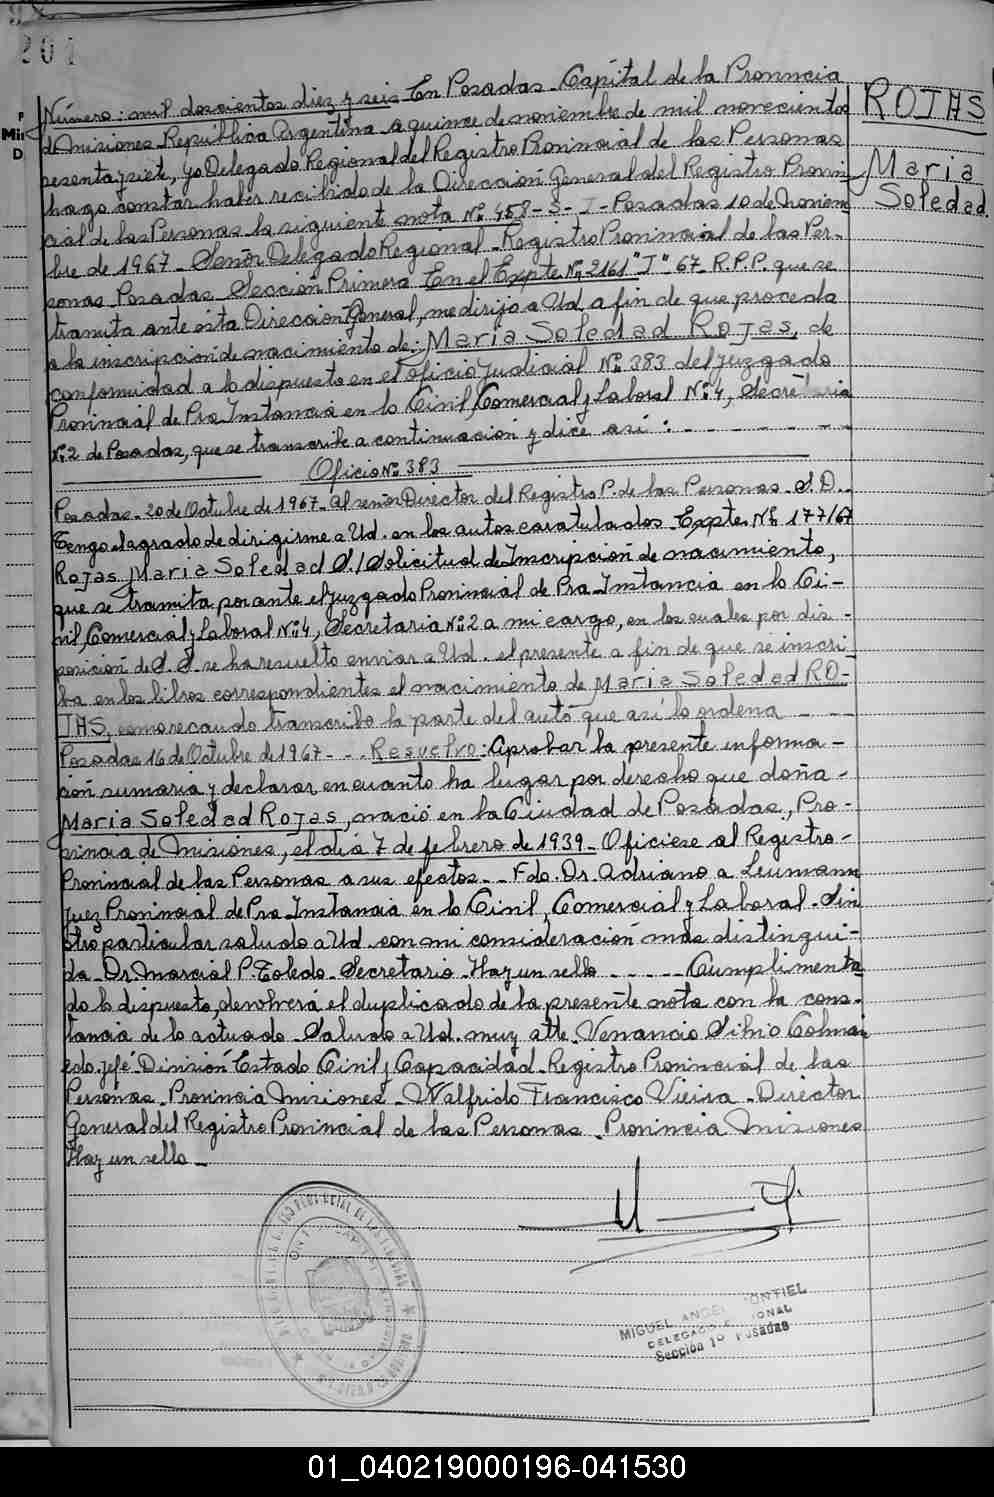 201
ROJAS
Maria
Soledad.
Número: mil doscientos diez y seis En Posadas. Capital de la Provincia
de Misiones República Argentina a quince de noviembre de mil novecientos
sesenta y siete, yo Delegado Regional del Registro Provincial de las Personas
hago constar haber recibido de la Dirección General del Registro Provin
cial de las Personas la siguiente nota Nº 458-S-I-Posadas 10 de noviem
bre de 1967. Señor Delegado Regional. Registro Provincial de las Per-
sonas Posadas Sección Primera En el Expte Nº 2161 "J" 67. R.P.P. que se
tramita ante esta Dirección General, me dirijo a Ud. a fin de que proceda
a la inscripción de nacimiento de: Maria Soledad Rojas, de
conformidad a lo dispuesto en el oficio judicial Nº 383 del juzgado
Provincial de Pra Instancia en lo Civil, Comercial y Laboral Nº 4, Secretaria
Nº 2 de Posadas, que se transcribe a continuación y dice asi: - - - - - -
Oficio Nº 383
Posadas. 20 de Octubre de 1967. Al señor Director del Registro P. de las Personas. S. D.
Tengo el agrado de dirigirme a Ud. en los autos caratulados Expte. Nº 177/67
Rojas Maria Soledad S./Solicitud de Inscripción de nacimiento,
que se tramita por ante el Juzgado Provincial de Pra Instancia en lo Ci-
vil, Comercial y Laboral Nº 4, Secretaria Nº 2 a mi cargo, en los cuales por dis-
posición de S. S. se ha resuelto enviar a Ud. el presente a fin de que se inscri
ba en los libros correspondientes el nacimiento de Maria Soledad RO-
JAS, como recaudo transcribo la parte del auto que asi lo ordena - - -
Posadas 16 de Octubre de 1967- - . Resuelvo: Aprobar la presente informa-
ción sumaria y declarar en cuanto ha lugar por derecho que doña-
Maria Soledad Rojas, nació en la Ciudad de Posadas, Pro-
vincia de Misiones, el día 7 de febrero de 1939. Oficiese al Registro-
Provincial de las Personas a sus efectos. - Fdo. Dr. Adriano A Leumann
Juez Provincial de Pra Instancia en lo Civil, Comercial y Laboral. Sin
otro particular saludo a Ud. con mi consideración más distingui-
da Dr. Marcial P. Toledo. Secretario. Hay un sello - - - - - Cumplimenta
do lo dispuesto, devolverá el duplicado de la presente nota con la cons-
tancia de lo actuado. Saludo a Ud. muy atte. Venancio Silvio Colman
edo. jefe División Estado Civil y Capacidad. Registro Provincial de las
Personas. Provincia Misiones. Walfrido Francisco Vieira. Director
General del Registro Provincial de las Personas. Provincia Misiones
Hay un sello. -
MIGUEL ANGEL
Sección 1º Posadas
01_040219000196-041530